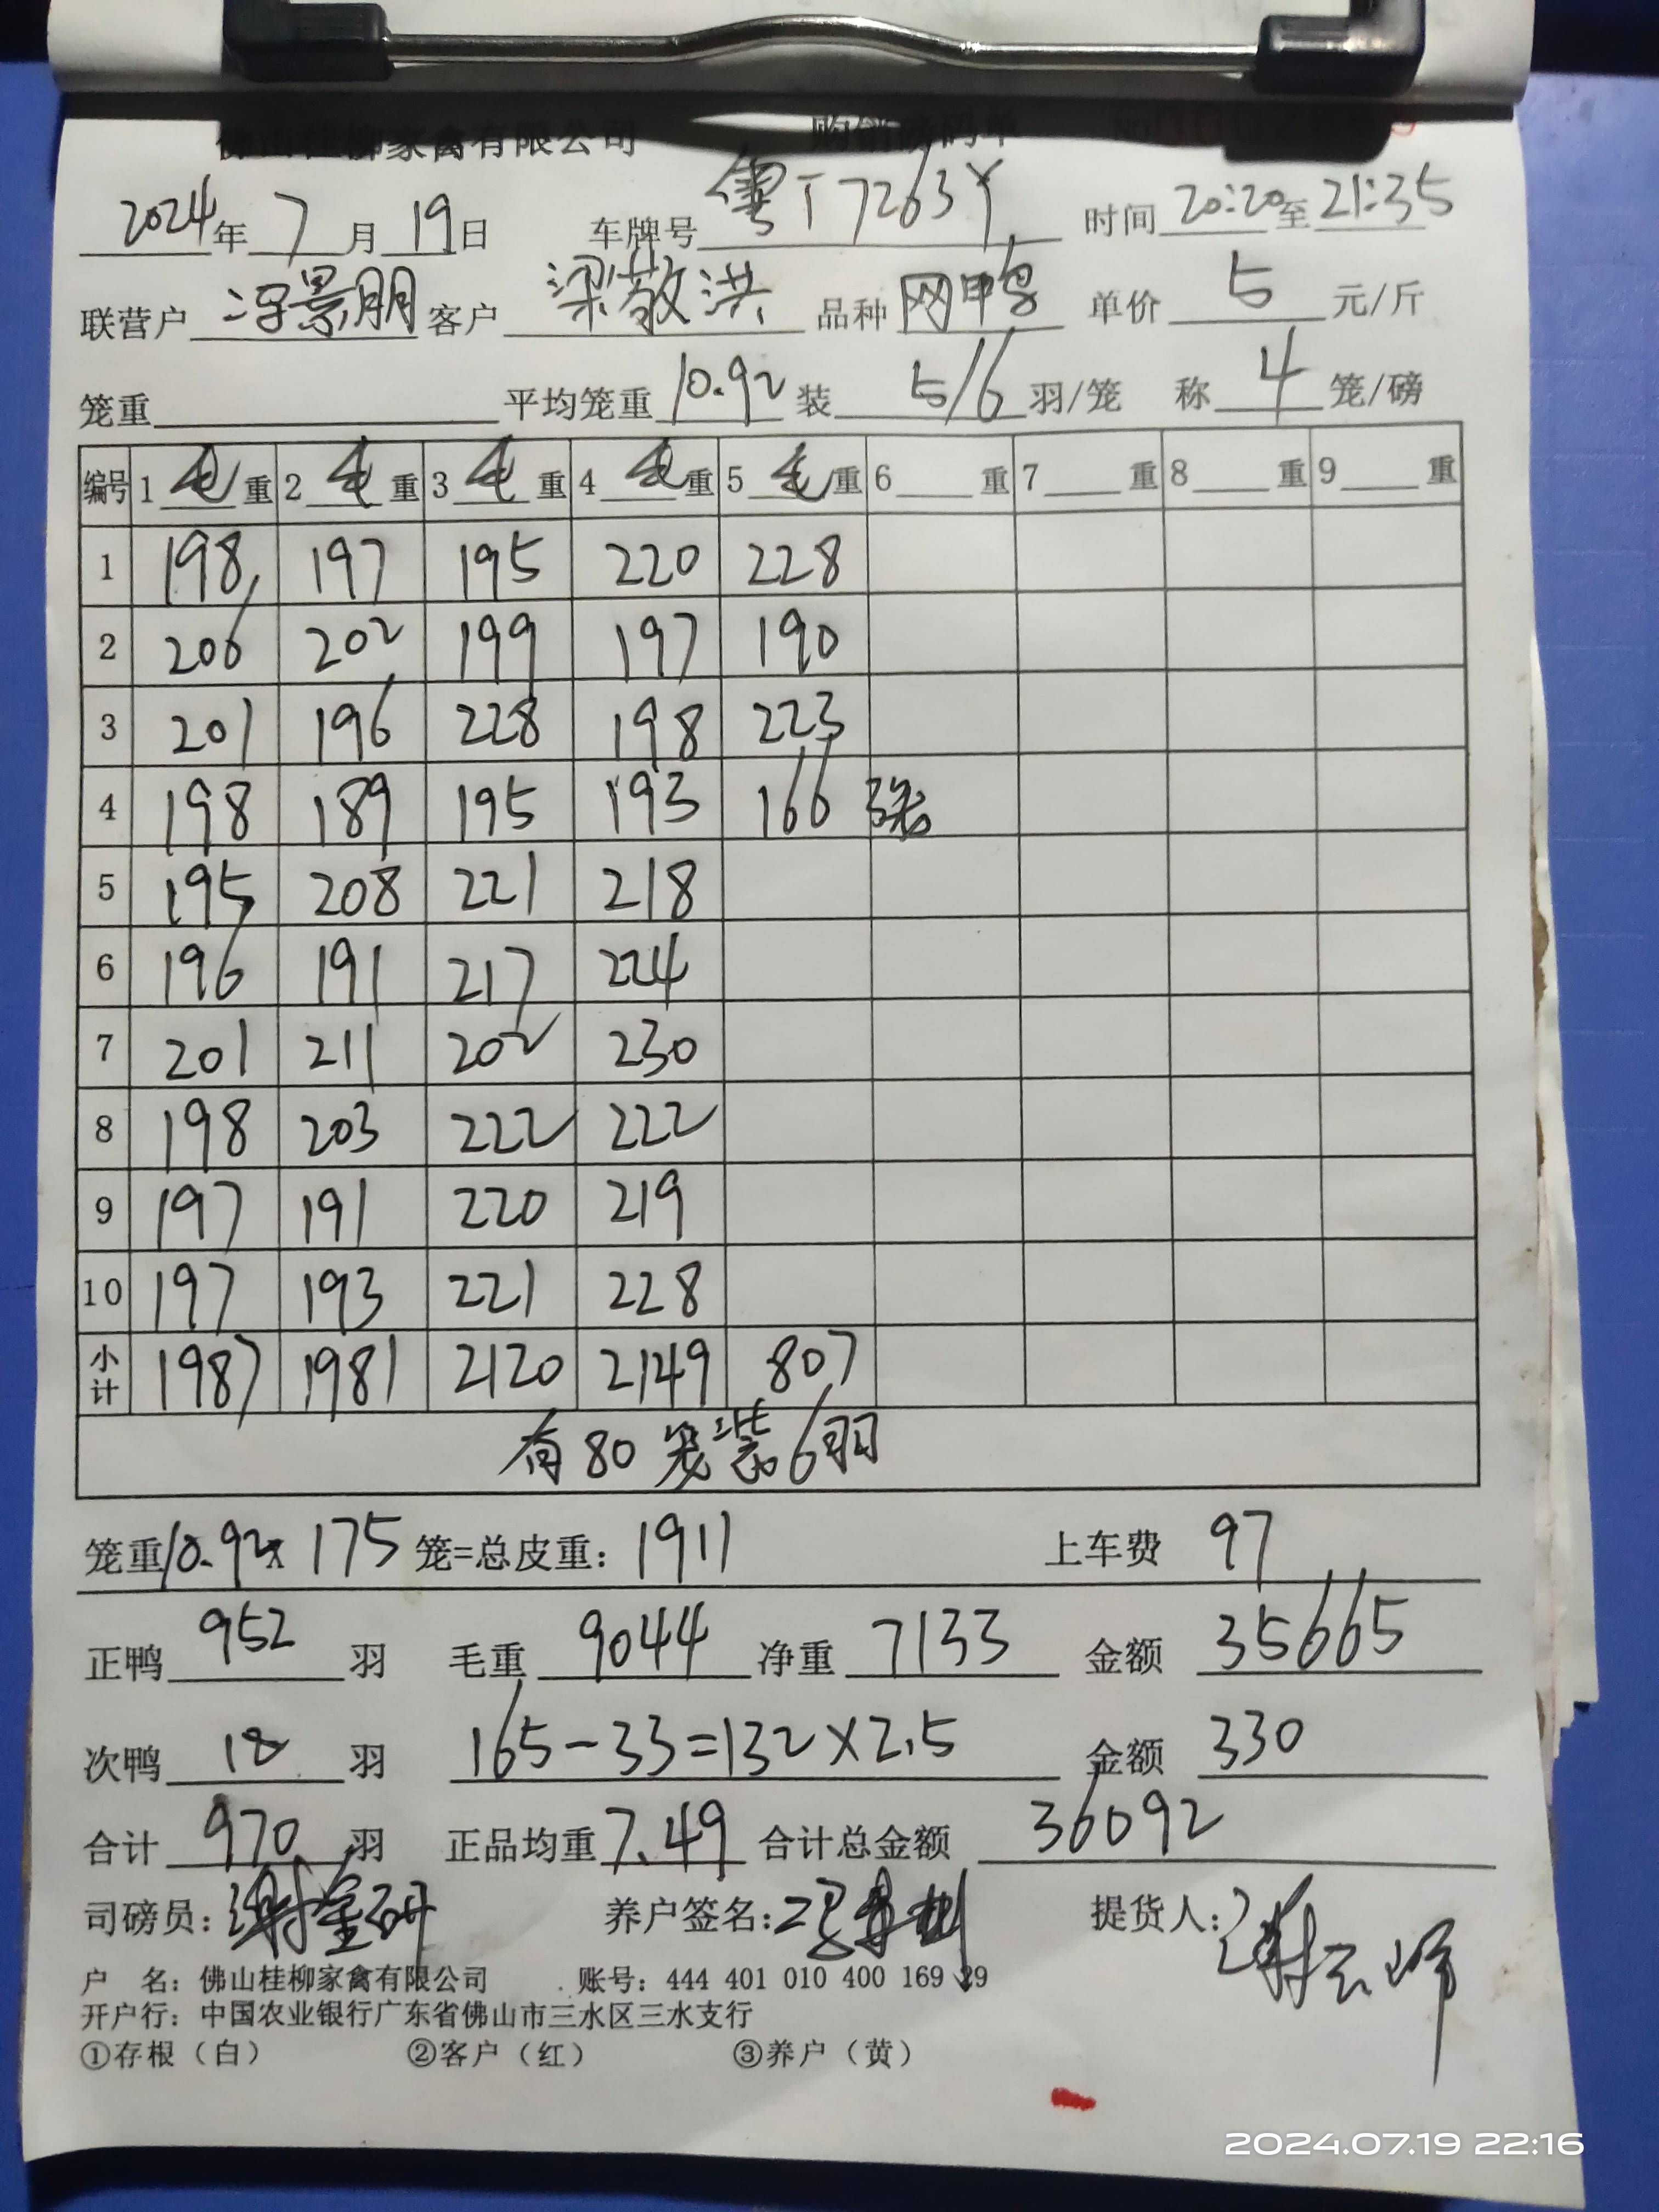 佛山桂柳家禽有限公司 购销磅码单
2024年7月19日 车牌号 粤T7263Y 时间 20:20至21:35
联营户 冯景朋 客户 梁敬洪 品种 网鸭 单价 5 元/斤
笼重 平均笼重 10.92 装 5/6 羽/笼 称 4 笼/磅
编号 1 毛重 2 毛重 3 毛重 4 毛重 5 毛重 6 重 7 重 8 重 9 重
1 198 197 195 220 228
2 206 202 199 197 190
3 201 196 228 198 223
4 198 189 195 193 166 3笼
5 195 208 221 218
6 196 191 217 224
7 201 211 202 230
8 198 203 222 222
9 197 191 220 219
10 197 193 221 228
小计 1987 1981 2120 2149 807
有80笼装6羽
笼重10.92x175笼=总皮重：1911 上车费 97
正鸭 952 羽 毛重 9044 净重 7133 金额 35665
次鸭 18 羽 165-33=132×2.5 金额 330
合计 970 羽 正品均重 7.49 合计总金额 36092
司磅员： 养户签名： 提货人：
户 名：佛山桂柳家禽有限公司 账号：444 401 010 400 169 39
开户行：中国农业银行广东省佛山市三水区三水支行
①存根（白） ②客户（红） ③养户（黄）
2024.07.19 22:16